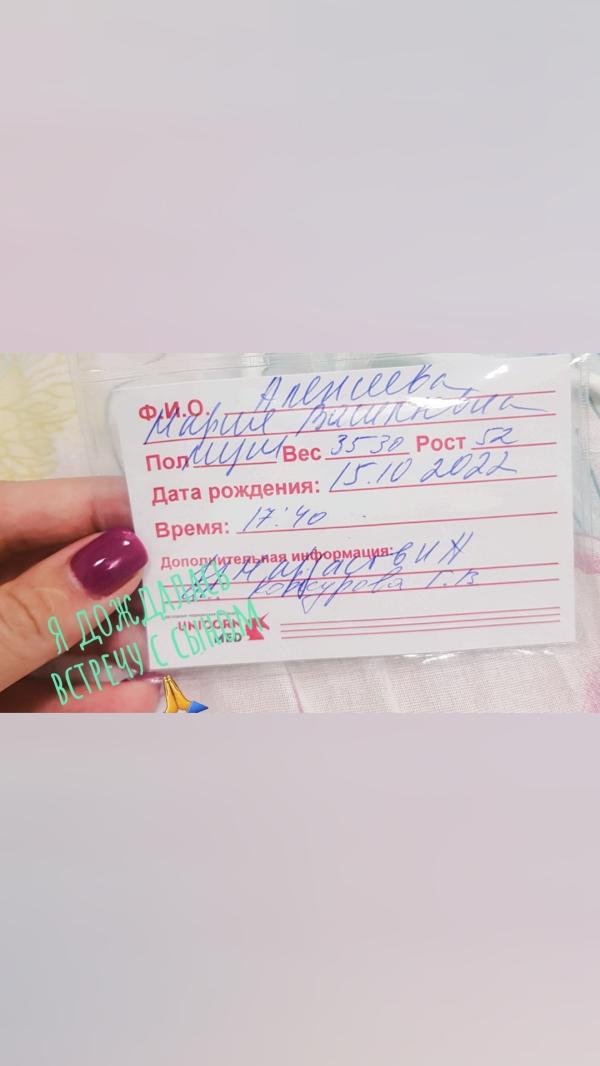 Ф.И.О. Алексеева
Мария
Пол муж Вес 3530 Рост 52
Дата рождения: 15.10 2022
Время: 17:40
Дополнительная информация:
UNICORN
MED
Я ДОЖДАЛАСЬ
ВСТРЕЧУ С СЫНОМ